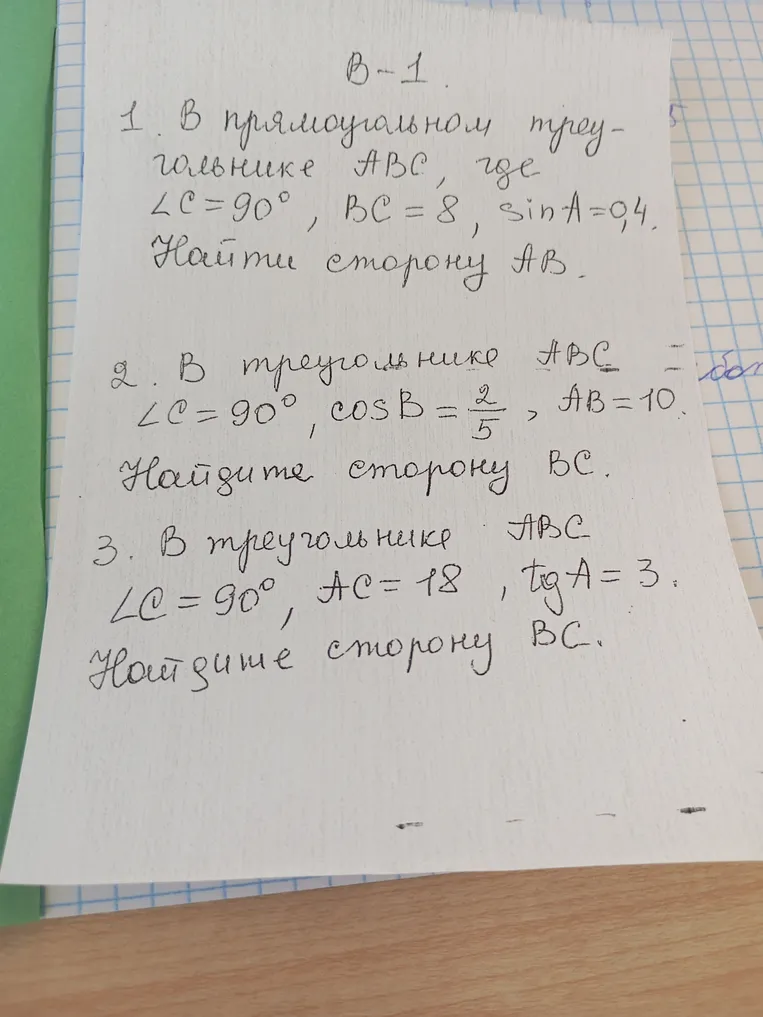 В-1.
1. В прямоугольном треу-
гольнике ABC, где
∠C = 90°, BC = 8, sin A = 0,4.
Найти сторону AB.
2. В треугольнике ABC
∠C = 90°, cos B = 2/5, AB = 10.
Найдите сторону BC.
3. В треугольнике ABC
∠C = 90°, AC = 18, tg A = 3.
Найдите сторону BC.